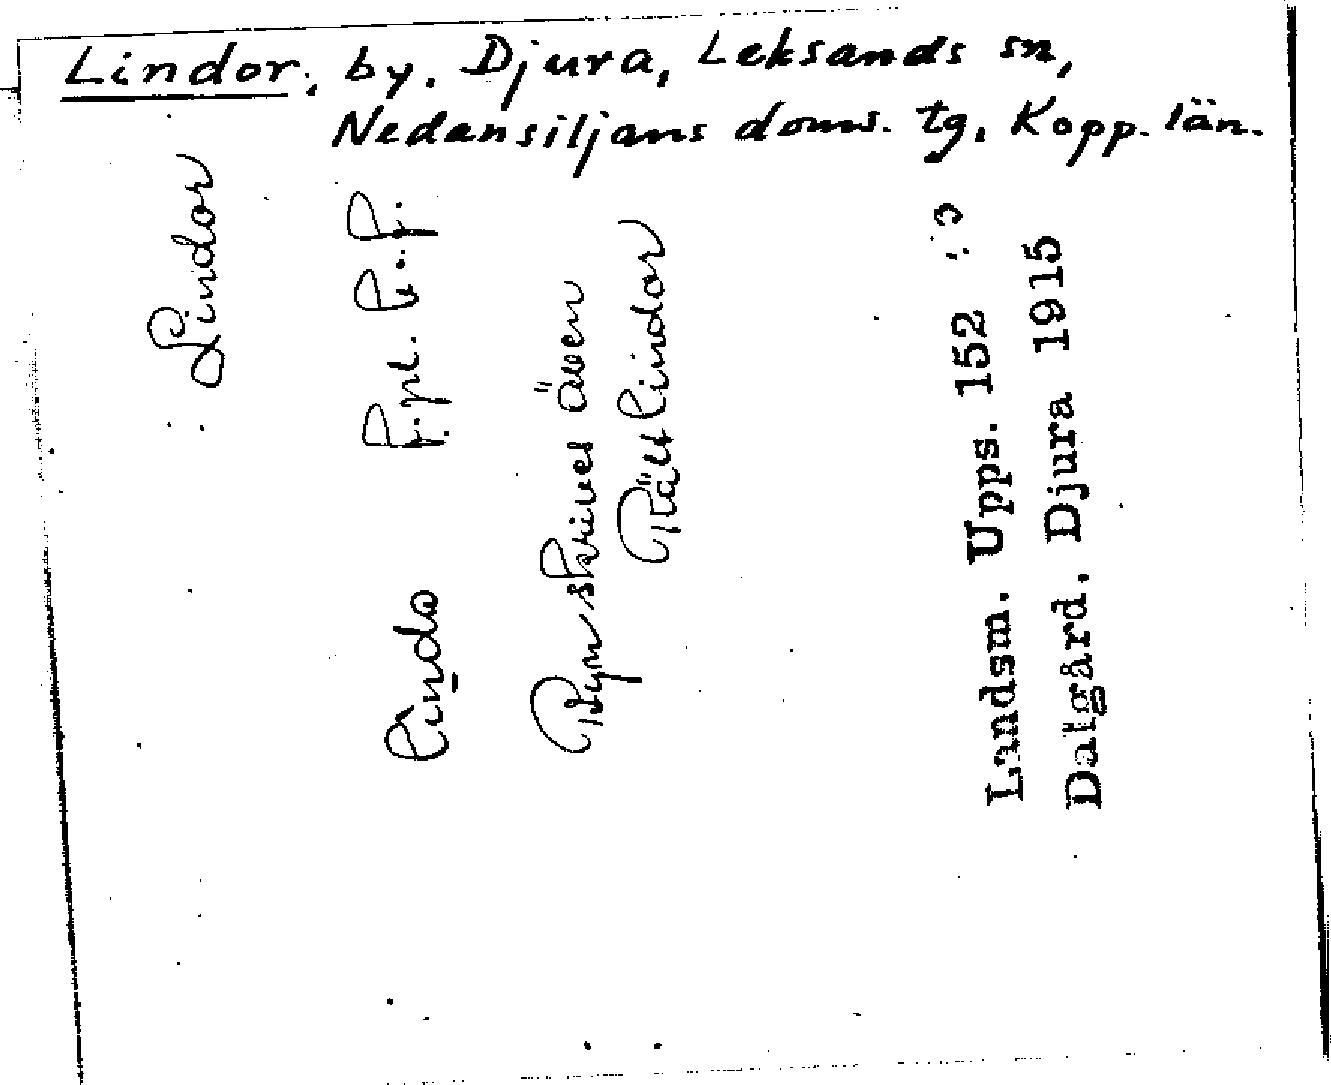 Lindor, by. Djura, Leksands sn,
Nedansiljans doms. tg, Kopp. län.
Lindor
Lindo
Byn skrives även
Rältlindor
Landsm. Upps. 152
Dalgård. Djura 1915